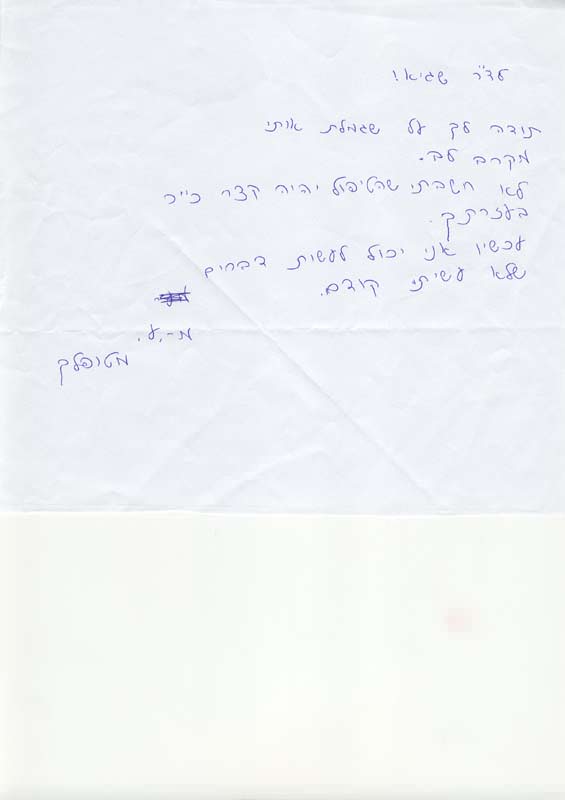 לד"ר שגיא!
תודה לך על שגמלת אותי
מקרב לב.
לא חשבתי שהטיפול יהיה קצר כ"כ
בעזרתך.
עכשיו אני יכול לעשות דברים
שלא עשיתי קודם.
מ-, ע.
מטופלך